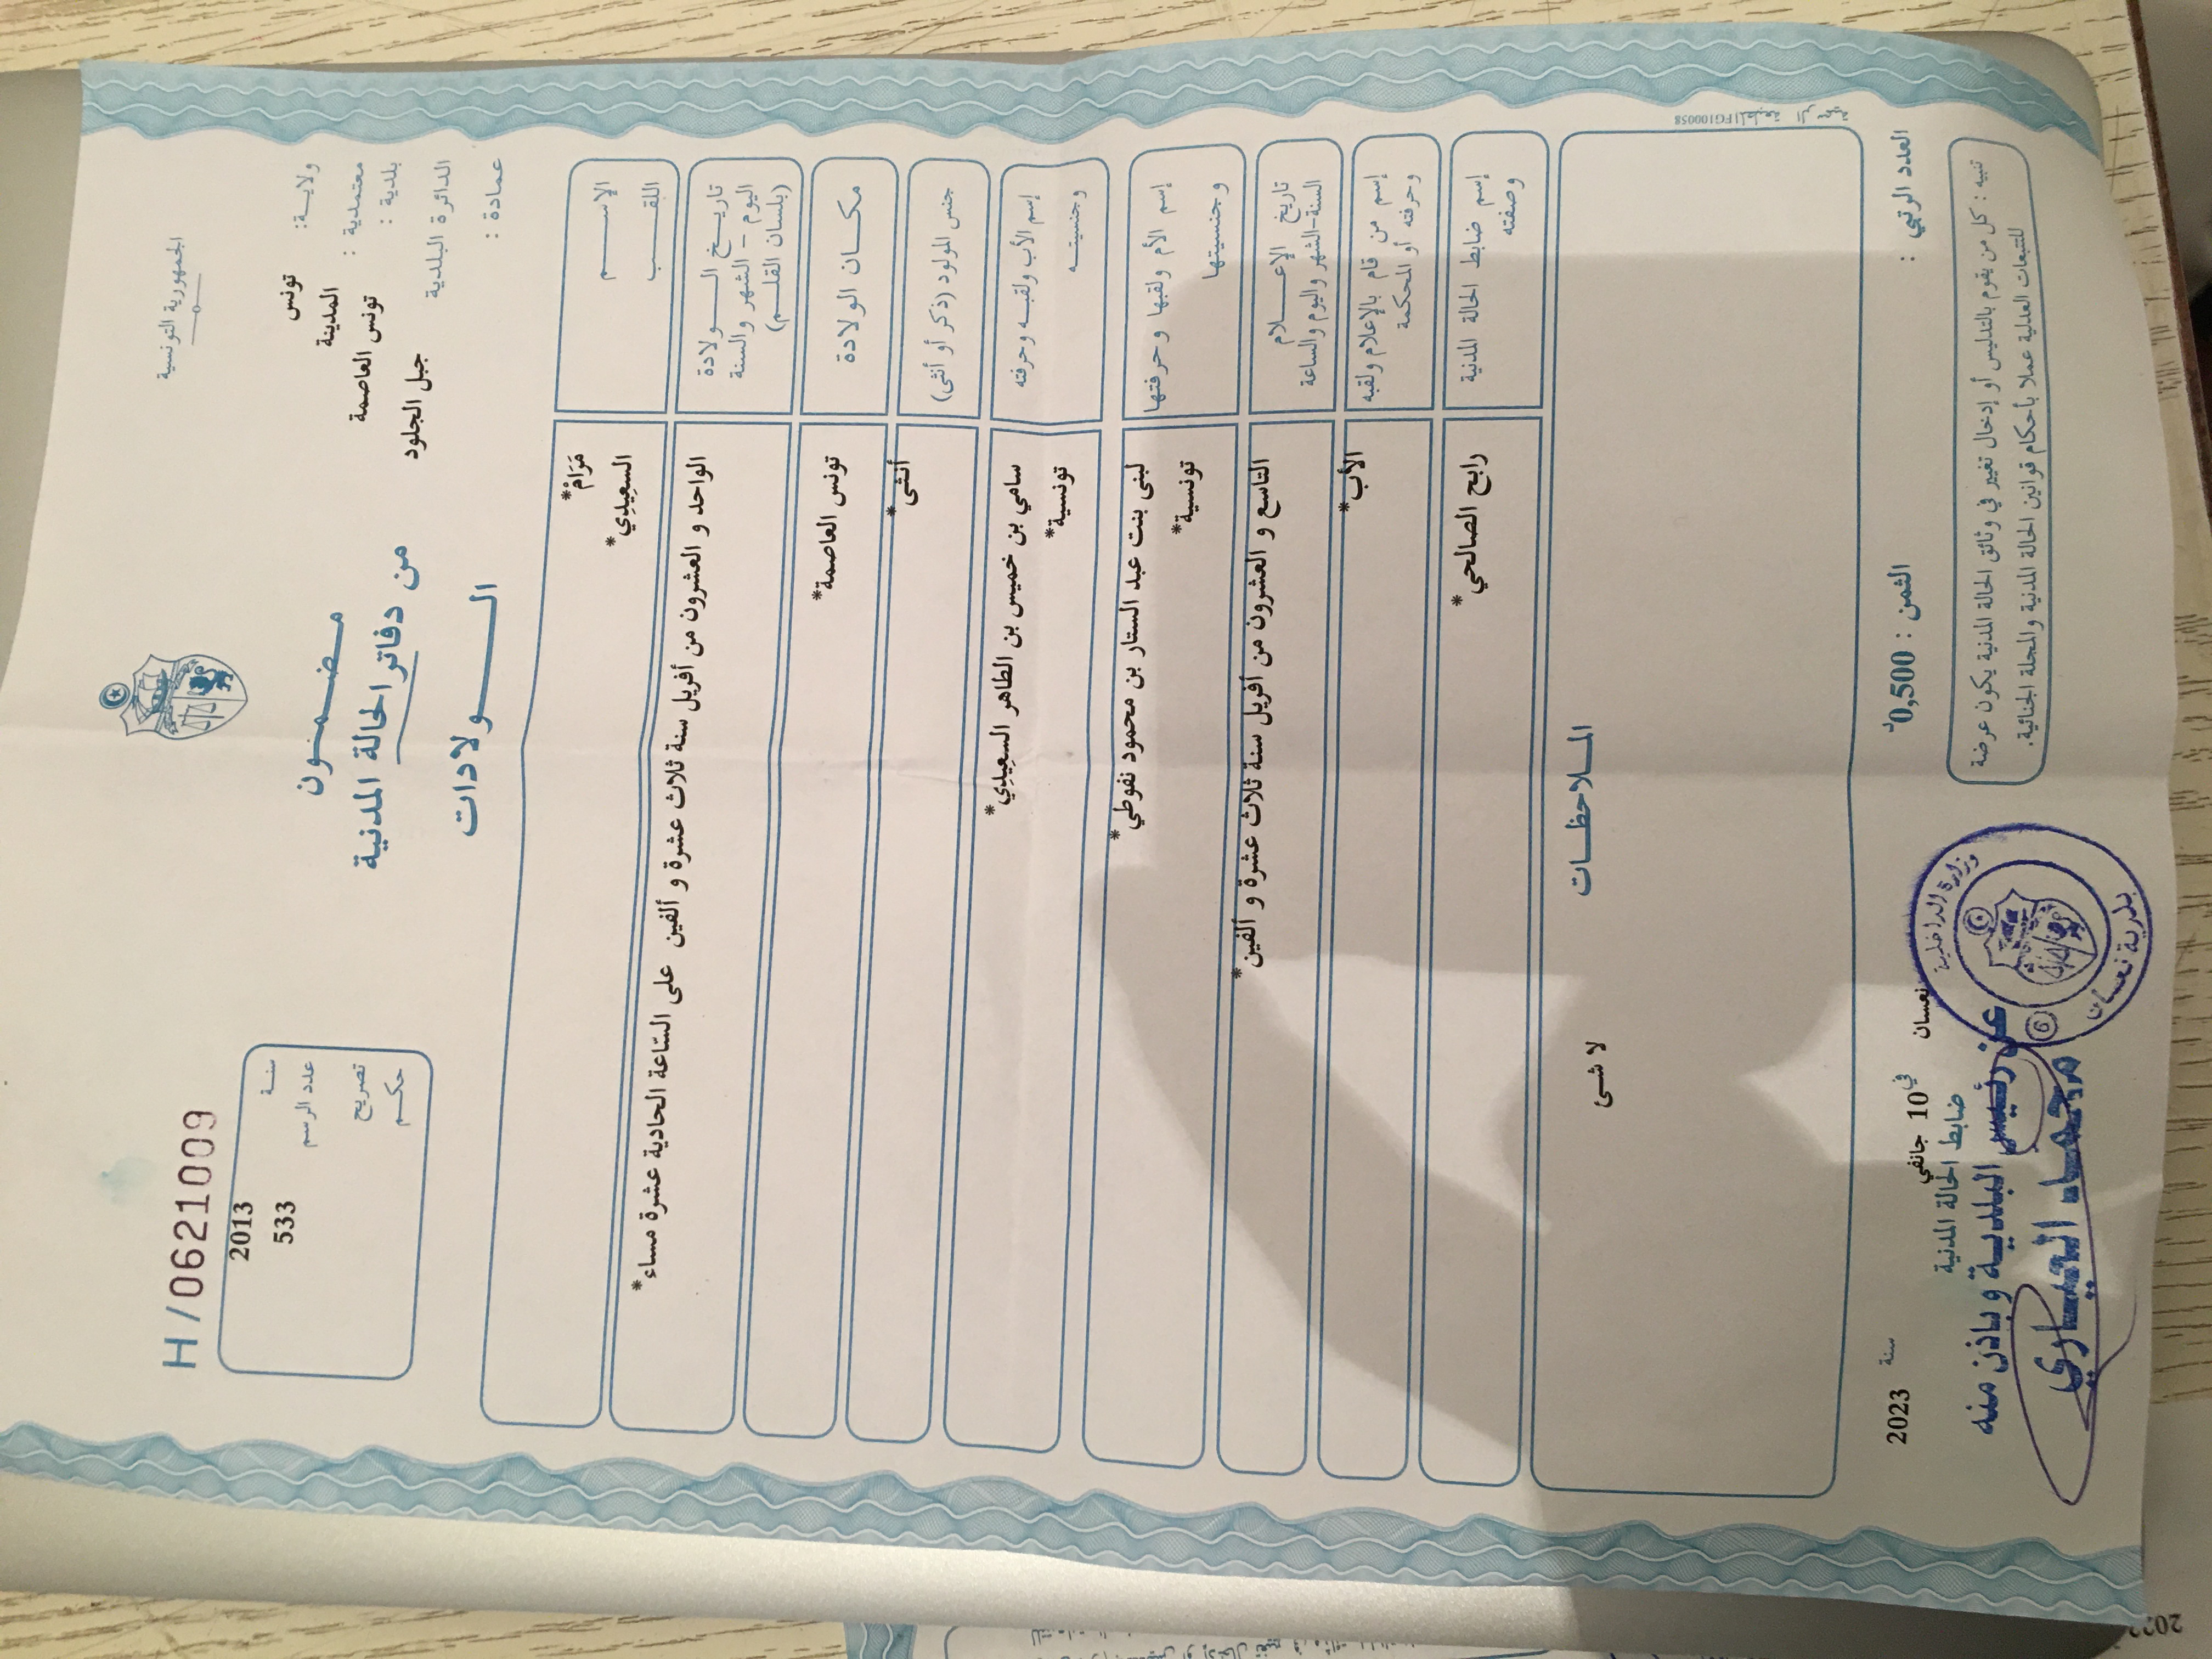 الجمهورية التونسية
H/0621009
ولايـة: تونس
معتمدية : المدينة
بلدية : تونس العاصمة
الدائرة البلدية جبل الجلود
عمادة :
مضمون
من دفاتر الحالة المدنية
الولادات
سنة 2013
عدد الرسم 533
تصريح
حكم
الإسم مَرَامْ*
اللقب السعِيدِي*
تاريخ الولادة
اليوم - الشهر والسنة
(بلسان القلم)
الواحد و العشرون من أفريل سنة ثلاث عشرة و ألفين على السّاعة الحادية عشرة مساء*
مكان الولادة تونس العاصمة*
جنس المولود (ذكر أو أنثى) أنثى*
إسم الأب ولقبه وحرفته سامي بن خميس بن الطاهر السعِيدِي*
وجنسيته تونسية*
إسم الأم ولقبها وحرفتها لبنى بنت عبد الستار بن محمود نفوطي*
وجنسيتها تونسية*
تاريخ الإعلام
السنة-الشهر واليوم والساعة
التاسع و العشرون من أفريل سنة ثلاث عشرة و ألفين*
إسم من قام بالإعلام ولقبه
وحرفته أو المحكمة
الأب*
إسم ضابط الحالة المدنية
وصفته
رابح الصالحي*
الملاحظات
لا شئ
العدد الرتبي :
الثمن : 0,500د
نعسان في 10 جانفي سنة 2023
ضابط الحالة المدنية
عن رئيس البلدية وبإذن منه
وزارة الداخلية
بلدية نعسان
6
تنبيه : كل من يقوم بالتدليس أو إدخال تغيير في وثائق الحالة المدنية يكون عرضة
للتتبعات العدلية عملا بأحكام قوانين الحالة المدنية والمجلة الجنائية.